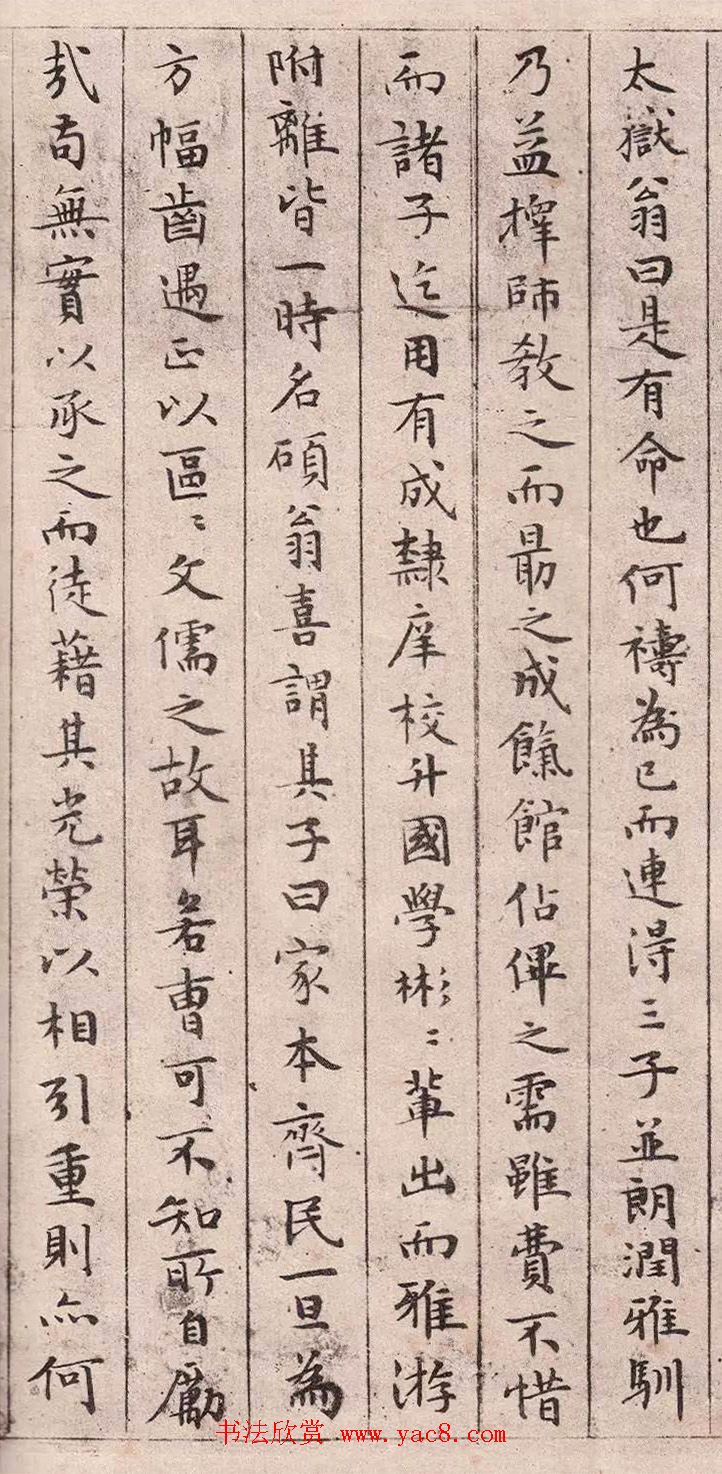 太嶽翁曰是有命也何禱為已而連得三子並朗潤雅馴
乃益擇師教之而勗之成餼館佔僤之需雖費不惜
而諸子迄用有成隸庠校升國學彬〻輩出而雅游
附離皆一時名碩翁喜謂其子曰家本齊民一旦為
方幅齒遇正以區〻文儒之故耳若曹可不知所自勵
哉苟無實以承之而徒藉其光榮以相引重則亦何
书法欣赏 www.yac8.com